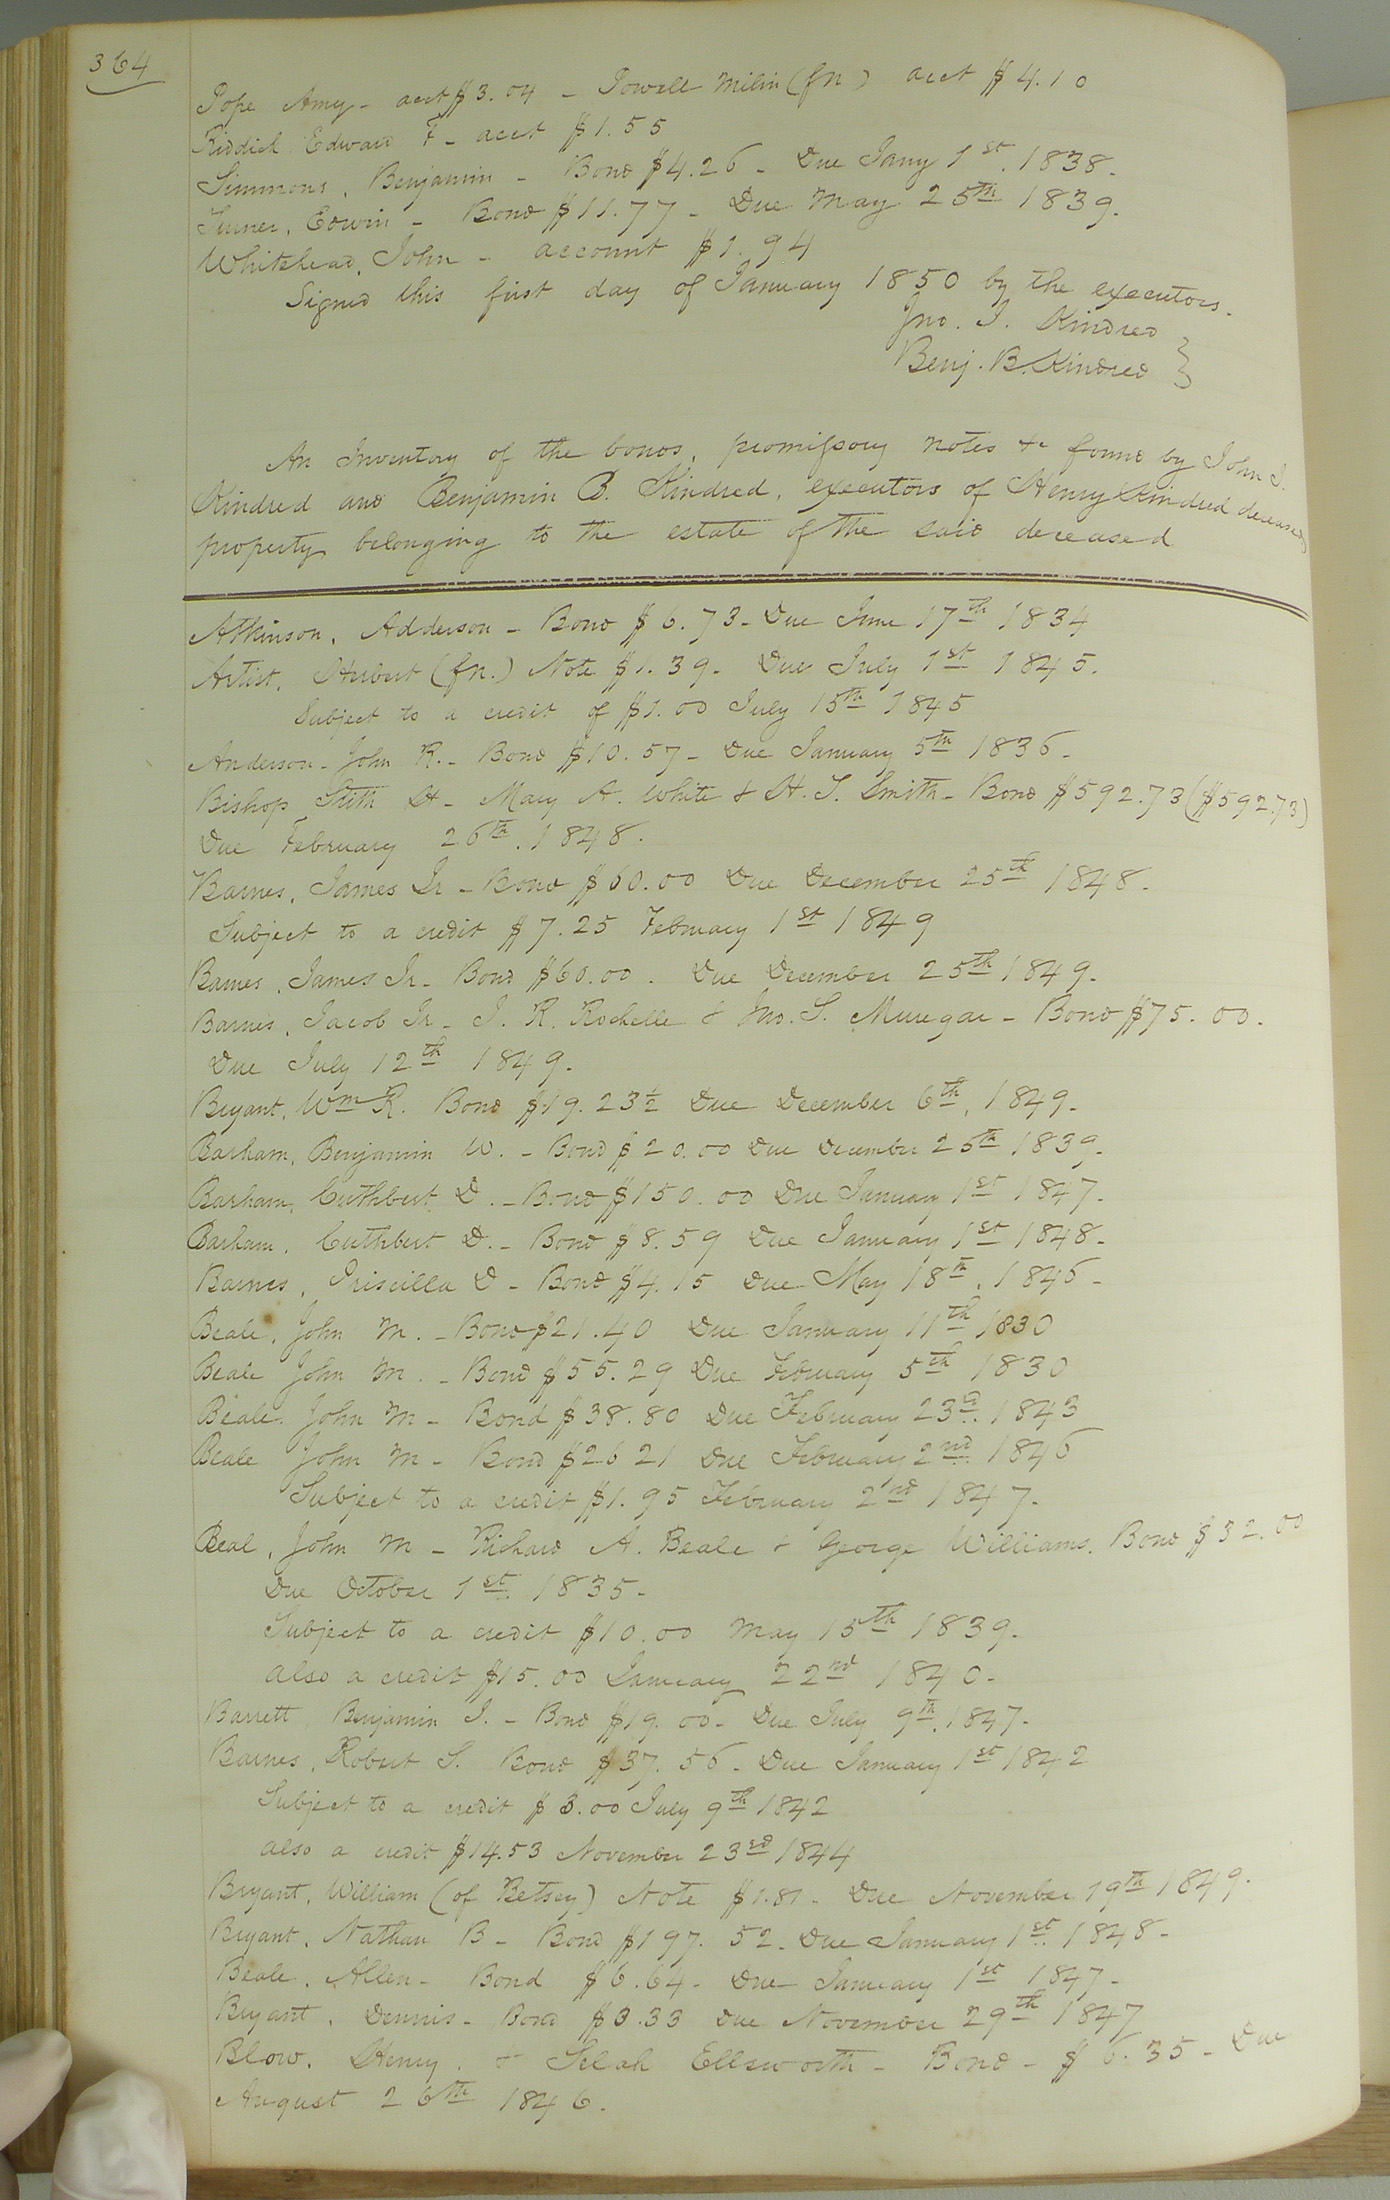 364
Pope Amy - acct $3.04 - Powell Milin (fn) acct $4.10
Riddick Edward F - acct $1.55
Simmons, Benjamin - Bond $4.26 - Due Jany 1st. 1838.
Turner, Edwin - Bond $11.77 - Due May 25th 1839.
Whitehead, John - account $1.94
Signed this first day of January 1850 by the executors.
Jno. J. Kindred
Benj. B. Kindred }
An Inventory of the bonds, promissory notes &c found by John J.
Kindred and Benjamin B. Kindred, executors of Henry Kindred deceased
property belonging to the estate of the said deceased
Atkinson, Adderson - Bond $6.73 - Due June 17th 1834
Artist, Herbert (fn.) Note $1.39 - Due July 1st 1845.
Subject to a credit of $1.00 July 15th 1845
Anderson - John R. - Bond $10.57 - Due January 5th 1836 -
Bishop Stith H - Mary A. White & H. T. Smith - Bond $592.73 ($592.73)
Due February 26th. 1848.
Barnes, James Jr - Bond $60.00 Due December 25th 1848 -
Subject to a credit $7.25 February 1st 1849
Barnes, James Jr - Bond $60.00. Due December 25th 1849 -
Barnes, Jacob Jr - J. R. Rochelle & Jno. S. Muregar - Bond $75.00.
Due July 12th 1849.
Bryant, Wm R. Bond $19.23½ Due December 6th, 1849 -
Barham, Benjamin W. - Bond $20.00 Due December 25th 1839 -
Barham, Cuthbert D. - Bond $150.00 Due January 1st 1847 -
Barham, Cuthbert D. - Bond $8.59 Due January 1st 1848 -
Barnes, Priscilla D - Bond $4.15 Due May 18th, 1846 -
Beale, John M. - Bond $21.40 Due January 11th 1830
Beale John M. - Bond $55.29 Due February 5th 1830
Beale. John M - Bond $38.80 Due February 23d. 1843
Beale John M - Bond $26 21 Due February 2nd. 1846
Subject to a credit $1.95 February 2nd 1847 -
Beal, John M - Richard A. Beale & George Williams. Bond $32.00
Due October 1st 1835 -
Subject to a credit $10.00 May 15th 1839.
also a credit $15.00 January 22nd 1840 -
Barrett Benjamin J. - Bond $19.00 - Due July 9th, 1847 -
Barnes, Robert S. Bond $37.56 - Due January 1st 1842
Subject to a credit $3.00 July 9th 1842
also a credit $14.53 November 23rd 1844
Bryant, William (of Betsey) Note $1.81 - Due November 19th 1849.
Bryant, Nathan B - Bond $197.52 - Due January 1st. 1848 -
Beale, Allen - Bond $6.64 - Due January 1st 1847 -
Bryant, Dennis - Bond $3.33 Due November 29th 1847
Blow, Henry, & Selah Ellsworth - Bond - $6.35 - Due
August 26th 1846.